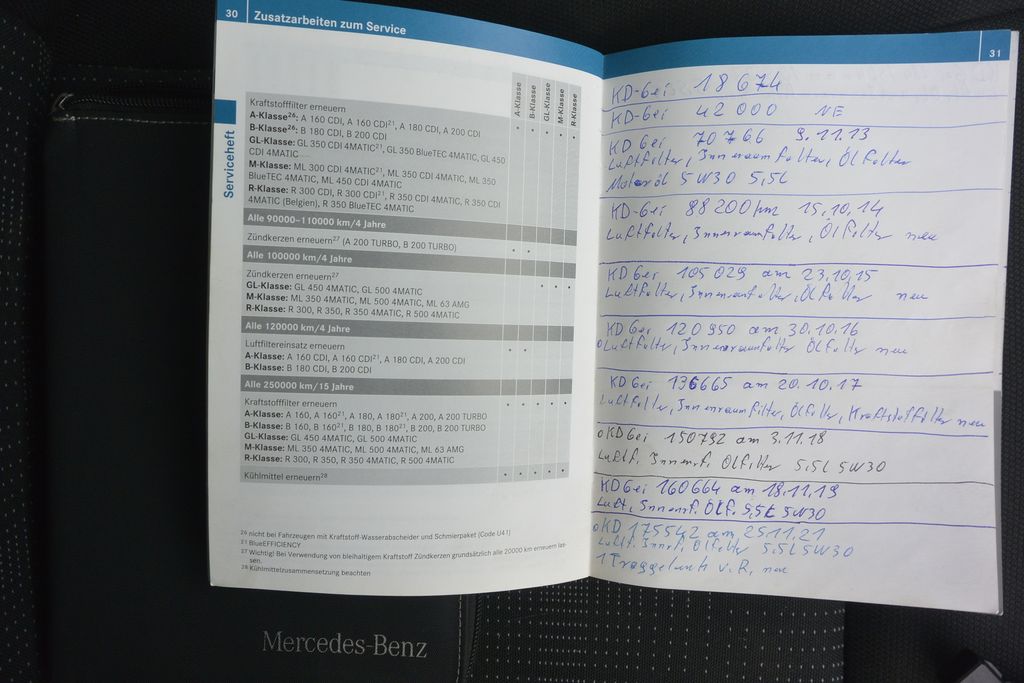 30 Zusatzarbeiten zum Service
Serviceheft
A-Klasse
B-Klasse
GL-Klasse
M-Klasse
R-Klasse
Kraftstofffilter erneuern
A-Klasse²⁶: A 160 CDI, A 160 CDI²¹, A 180 CDI, A 200 CDI
B-Klasse²⁶: B 180 CDI, B 200 CDI
GL-Klasse: GL 350 CDI 4MATIC²¹, GL 350 BlueTEC 4MATIC, GL 450
CDI 4MATIC
M-Klasse: ML 300 CDI 4MATIC²¹, ML 350 CDI 4MATIC, ML 350
BlueTEC 4MATIC, ML 450 CDI 4MATIC
R-Klasse: R 300 CDI, R 300 CDI²¹, R 350 CDI 4MATIC, R 350 CDI
4MATIC (Belgien), R 350 BlueTEC 4MATIC
Alle 90000–110000 km/4 Jahre
Zündkerzen erneuern²⁷ (A 200 TURBO, B 200 TURBO)
Alle 100000 km/4 Jahre
Zündkerzen erneuern²⁷
GL-Klasse: GL 450 4MATIC, GL 500 4MATIC
M-Klasse: ML 350 4MATIC, ML 500 4MATIC, ML 63 AMG
R-Klasse: R 300, R 350, R 350 4MATIC, R 500 4MATIC
Alle 120000 km/4 Jahre
Luftfiltereinsatz erneuern
A-Klasse: A 160 CDI, A 160 CDI²¹, A 180 CDI, A 200 CDI
B-Klasse: B 180 CDI, B 200 CDI
Alle 250000 km/15 Jahre
Kraftstofffilter erneuern
A-Klasse: A 160, A 160²¹, A 180, A 180²¹, A 200, A 200 TURBO
B-Klasse: B 160, B 160²¹, B 180, B 180²¹, B 200, B 200 TURBO
GL-Klasse: GL 450 4MATIC, GL 500 4MATIC
M-Klasse: ML 350 4MATIC, ML 500 4MATIC, ML 63 AMG
R-Klasse: R 300, R 350, R 350 4MATIC, R 500 4MATIC
Kühlmittel erneuern²⁸
²⁶ nicht bei Fahrzeugen mit Kraftstoff-Wasserabscheider und Schmierpaket (Code U41)
²¹ BlueEFFICIENCY
²⁷ Wichtig! Bei Verwendung von bleihaltigem Kraftstoff Zündkerzen grundsätzlich alle 20000 km erneuern las-
sen.
²⁸ Kühlmittelzusammensetzung beachten
31
KD-bei 18 674
KD-bei 42 000 NE
KD bei 70766 9.11.13
Luftfilter, Innenraumfilter, Ölfilter
Motoröl 5W30 5,5L
KD-bei 88 200 km 15.10.14
Luftfilter, Innenraumfilter, Ölfilter neu
KD bei 105 029 am 23.10.15
Luftfilter, Innenraumfilter, Ölfilter neu
KD bei 120 950 am 30.10.16
Luftfilter, Innenraumfilter Ölfilter neu
KD bei 136665 am 20.10.17
Luftfilter, Innenraumfilter, Ölfilter, Kraftstoffilter neu
KD bei 150792 am 3.11.18
Luftf. Innenrf. Ölfilter 5,5L 5W30
KD bei 160664 am 18.11.19
Luft, Innenrf. Ölf. 5,5L 5W30
KD 175542 am 25.11.21
Luftf. Innrf. Ölfilter 5,5L 5W30
1 Traggelenk v.R. neu
Mercedes-Benz